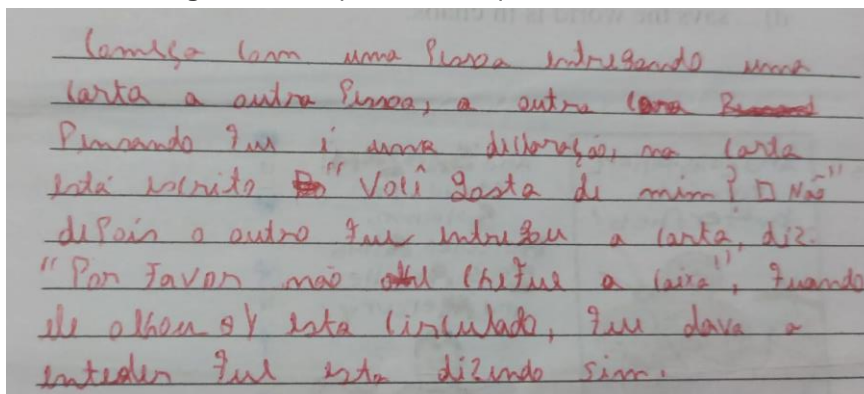 Começa com uma Pessoa entregando uma
carta a outra Pessoa, a outra
Pensando que é uma declaração, na carta
está escrito " Você gosta de mim? □ Não"
depois o outro que entregou a carta, diz.
"Por Favor não cheque a caixa", quando
ele olhou o Y esta circulado, que dava a
enteder que esta dizendo sim.